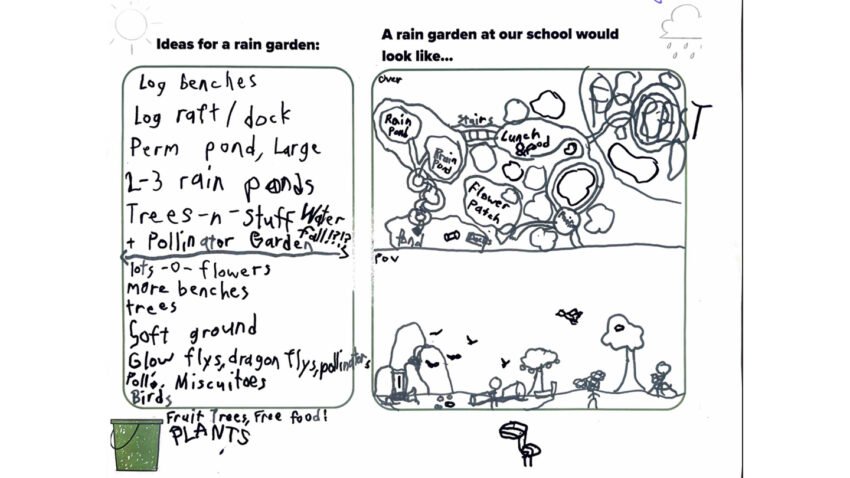 Ideas for a rain garden:
Log benches
Log raft / dock
Perm pond, Large
2-3 rain ponds
Trees-n-stuff Water
fall!?!?
+ Pollinator Garden
lots -o- flowers
more benches
trees
Soft ground
Glow flys, dragon flys, pollinators
Miscuitoes
Birds
Fruit Trees, Free food!
PLANTS
A rain garden at our school would
look like...
over
Rain
Pond
Stairs
Lunch
&
Rain
Pond
Flower
Patch
Pond
POV